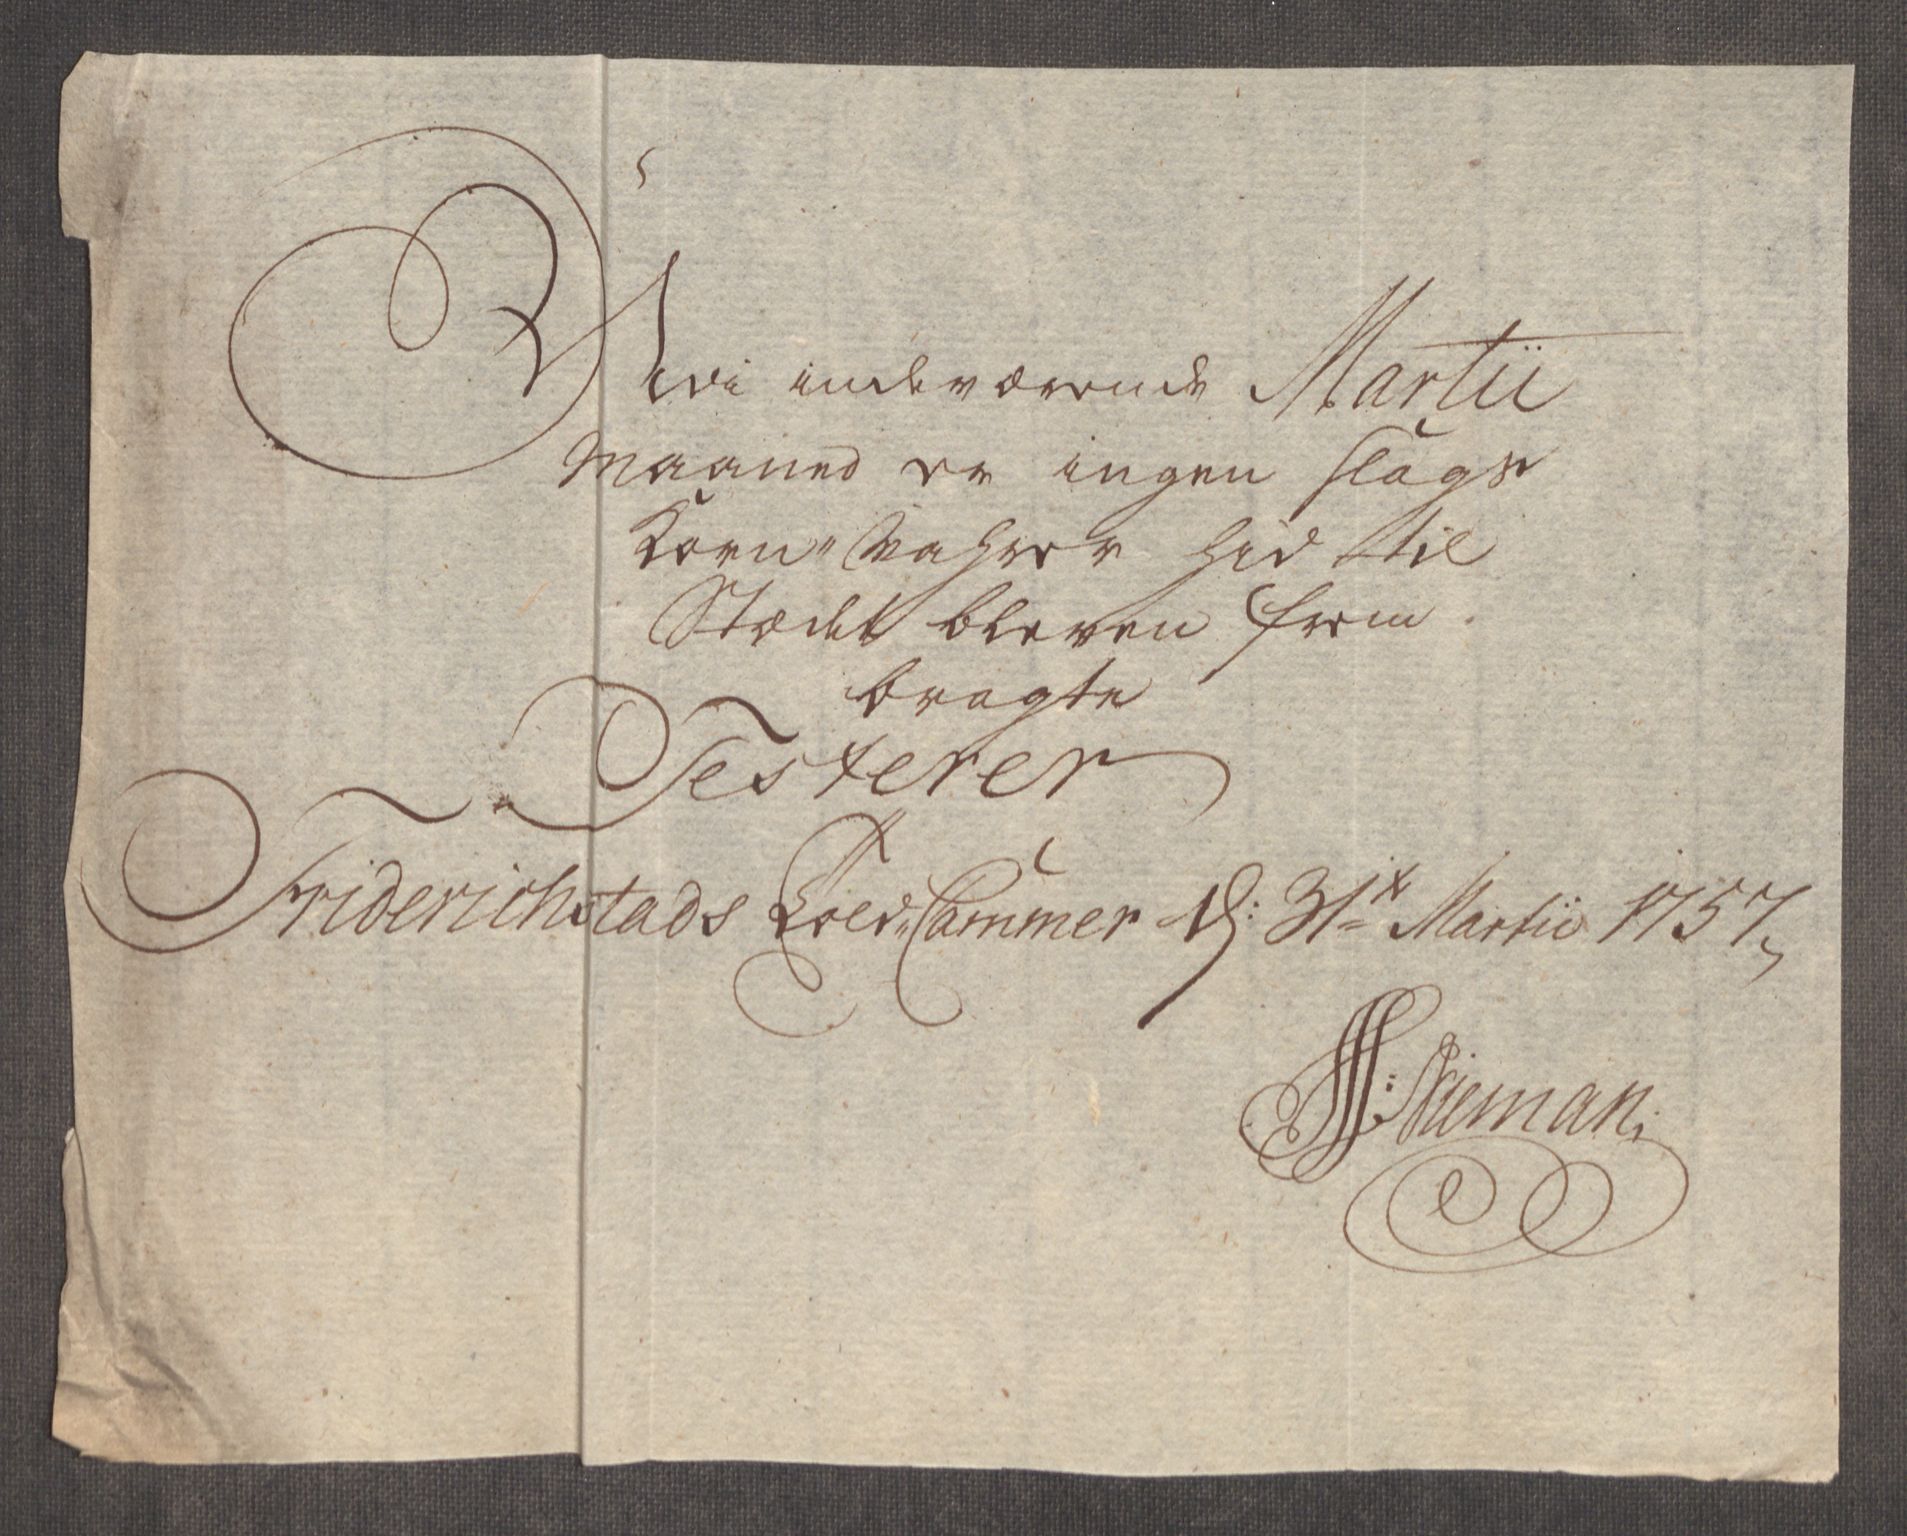 Udi indeværende Martii
Maaned er ingen slags
Korn-Vahrer hid til
Stædet bleven frem
bragte
Testerer
Friderichstads Told-Cammer d: 31te Martii 1757,
Nieman.